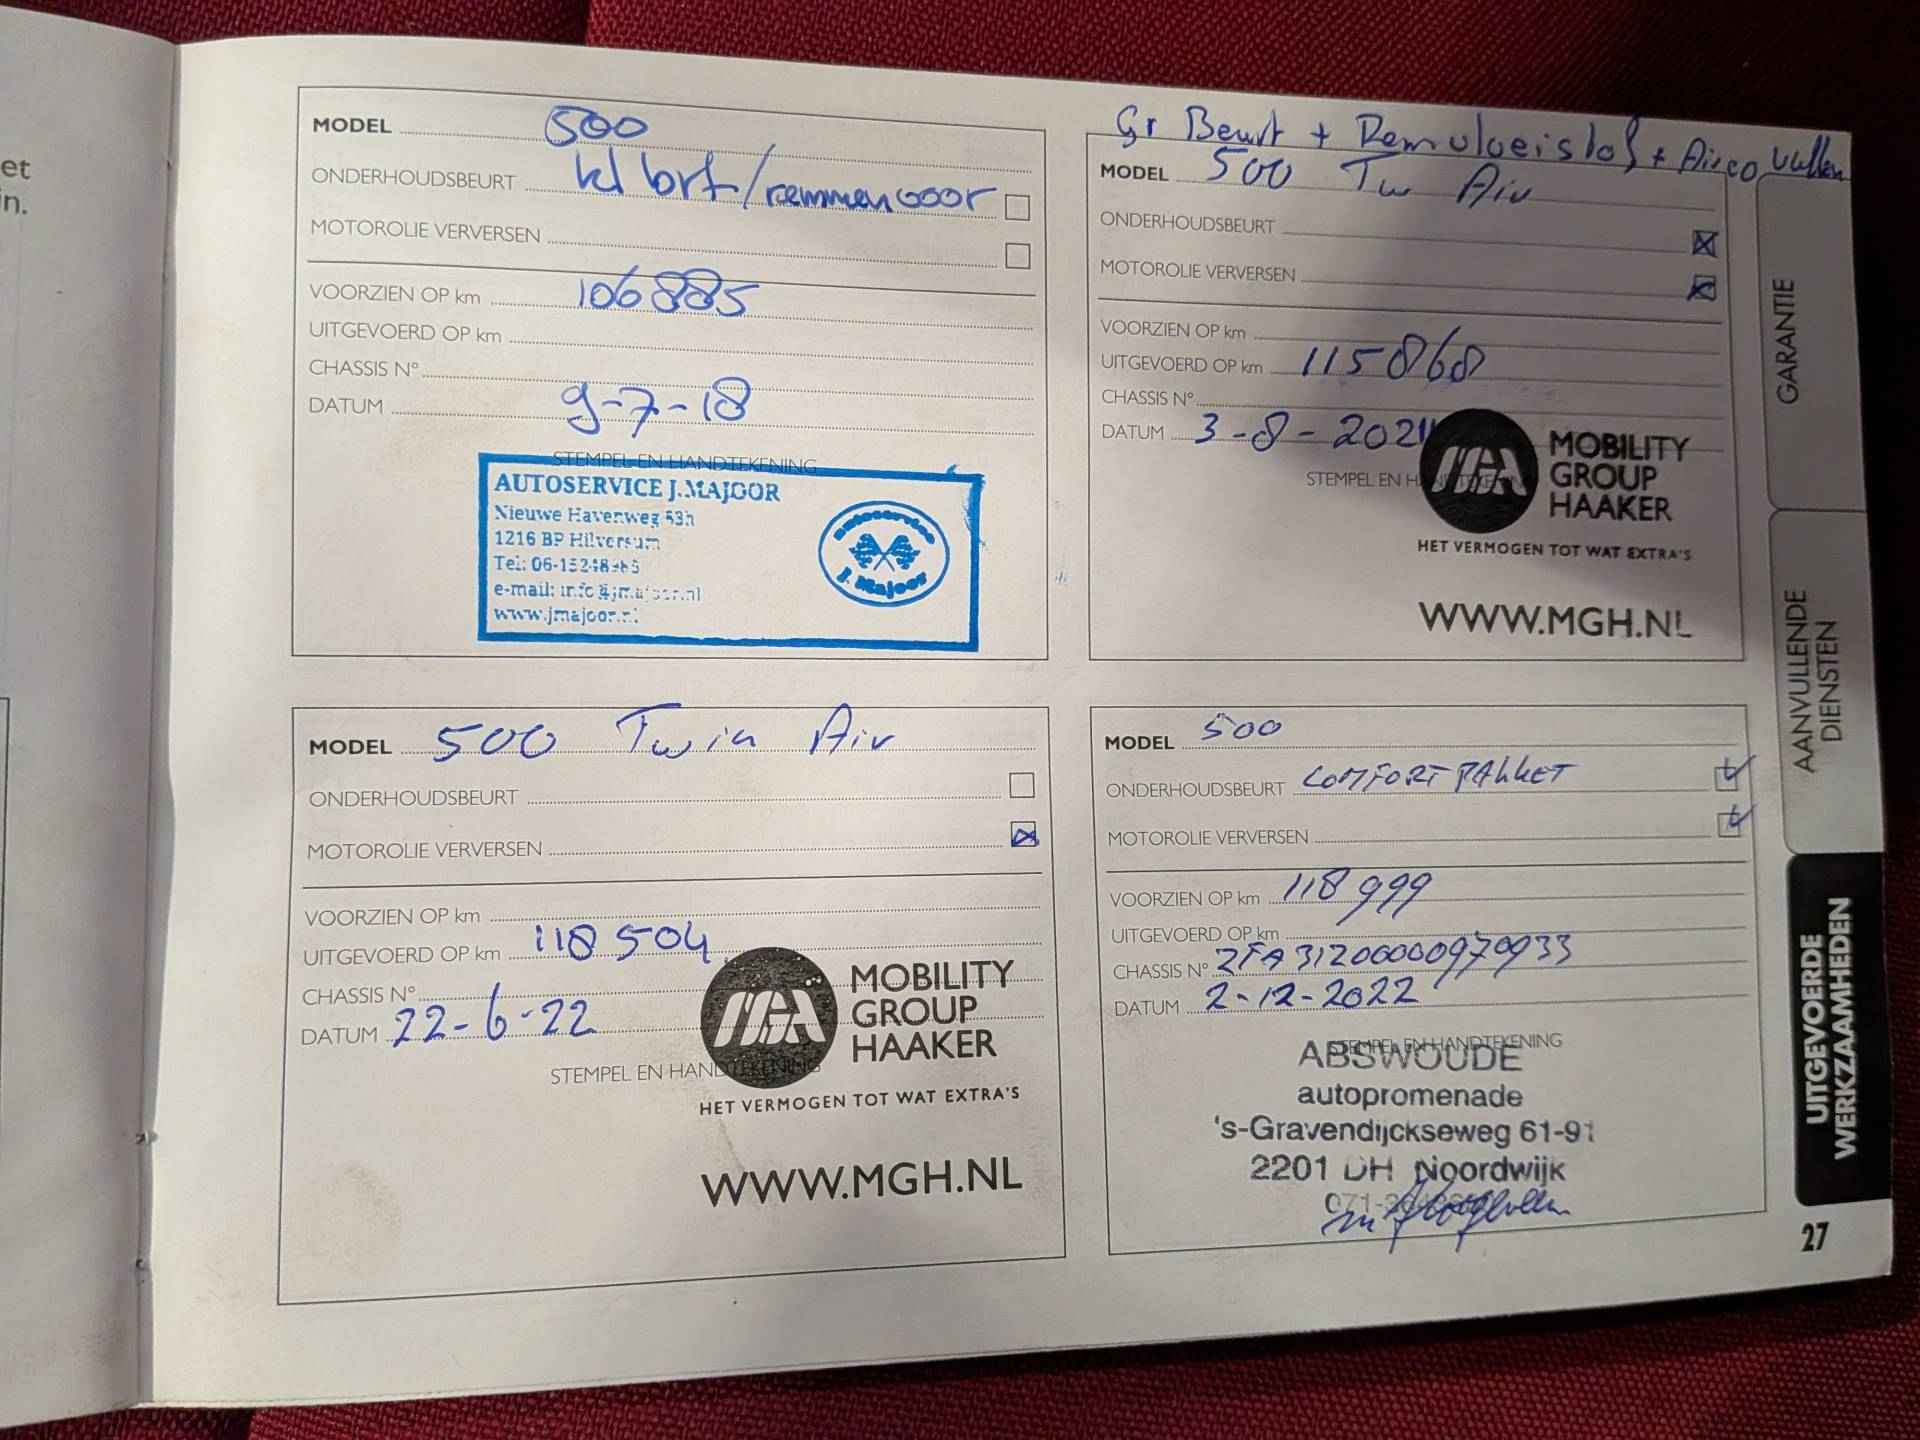 et
n.
MODEL 500
ONDERHOUDSBEURT kl brt/remmen voor
MOTOROLIE VERVERSEN
VOORZIEN OP km 106885
UITGEVOERD OP km
CHASSIS N°
DATUM 9-7-18
STEMPEL EN HANDTEKENING
AUTOSERVICE J.MAJOOR
Nieuwe Havenweg 53h
1216 BP Hilversum
Tel: 06-15248
e-mail: info@jmajoor.nl
www.jmajoor.nl
autoservice
J. Majoor
Gr Beurt + Remvloeistof + Airco vullen
MODEL 500 Tw Air
ONDERHOUDSBEURT
MOTOROLIE VERVERSEN
VOORZIEN OP km
UITGEVOERD OP km 115868
CHASSIS N°
DATUM 3-8-2021
STEMPEL EN HANDTEKENING
MOBILITY
GROUP
HAAKER
HET VERMOGEN TOT WAT EXTRA'S
WWW.MGH.NL
MODEL 500 Twin Air
ONDERHOUDSBEURT
MOTOROLIE VERVERSEN
VOORZIEN OP km
UITGEVOERD OP km 118504
CHASSIS N°
DATUM 22-6-22
STEMPEL EN HANDTEKENING
MOBILITY
GROUP
HAAKER
HET VERMOGEN TOT WAT EXTRA'S
WWW.MGH.NL
MODEL 500
ONDERHOUDSBEURT COMFORT PAKKET
MOTOROLIE VERVERSEN
VOORZIEN OP km 118999
UITGEVOERD OP km
CHASSIS N° ZFA31200000970933
DATUM 2-12-2022
STEMPEL EN HANDTEKENING
ABSWOUDE
autopromenade
's-Gravendijckseweg 61-91
2201 DH Noordwijk
071-
GARANTIE
AANVULLENDE
DIENSTEN
UITGEVOERDE
WERKZAAMHEDEN
27